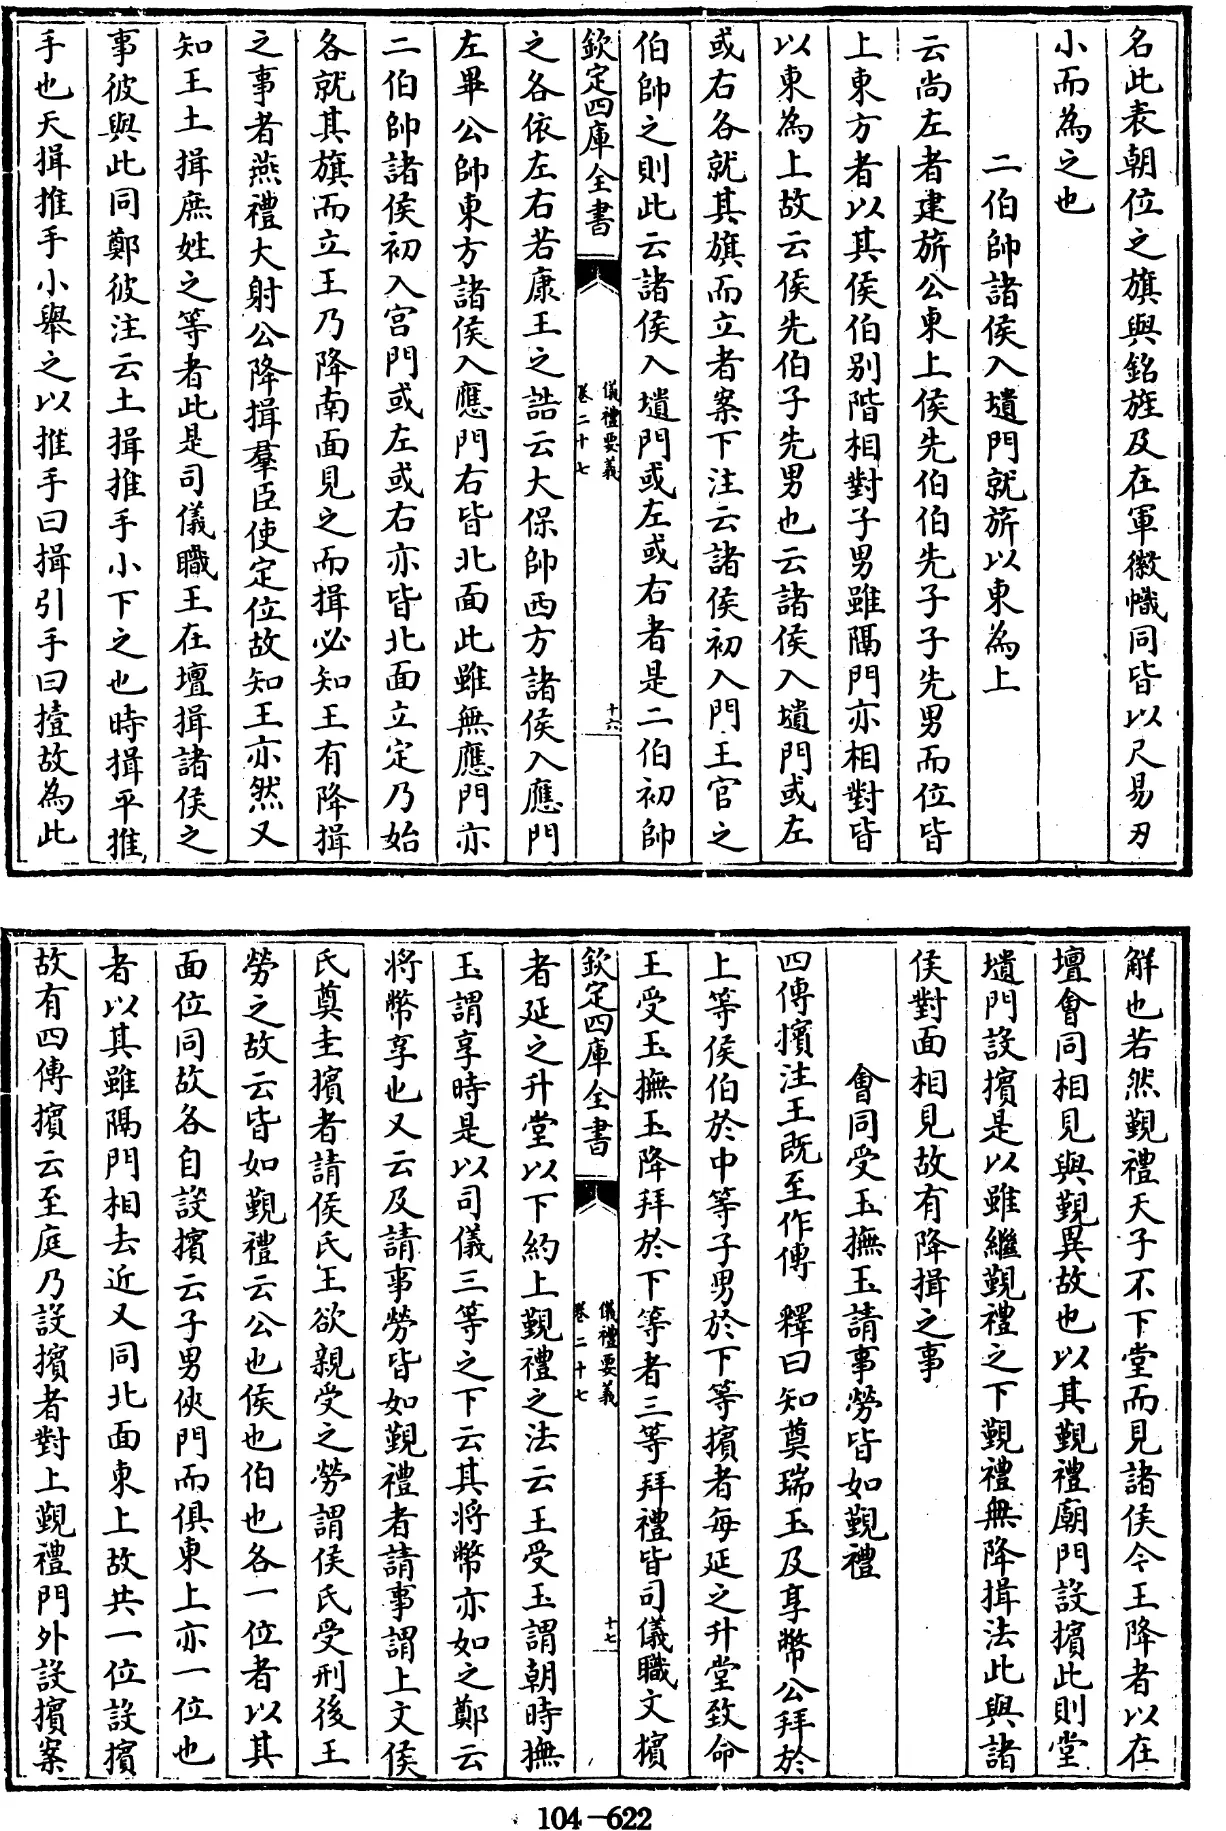 名此表朝位之旗與銘旌及在軍徽幟同皆以尺易刃
小而為之也
二伯帥諸侯入壝門就旂以東為上
云尚左者建旂公東上侯先伯伯先子子先男而位皆
上東方者以其侯伯别階相對子男雖隔門亦相對皆
以東為上故云侯先伯子先男也云諸侯入壝門或左
或右各就其旗而立者案下注云諸侯初入門王官之
伯帥之則此云諸侯入壝門或左或右者是二伯初帥
欽定四庫全書
儀禮要義
卷二十七
十六
之各依左右若康王之誥云大保帥西方諸侯入應門
左畢公帥東方諸侯入應門右皆北面此雖無應門亦
二伯帥諸侯初入宫門或左或右亦皆北面立定乃始
各就其旗而立王乃降南面見之而揖必知王有降揖
之事者燕禮大射公降揖羣臣使定位故知王亦然又
知王土揖庶姓之等者此是司儀職王在壇揖諸侯之
事彼與此同鄭彼注云土揖推手小下之也時揖平推
手也天揖推手小舉之以推手曰揖引手曰撎故為此
解也若然覲禮天子不下堂而見諸侯今王降者以在
壇會同相見與覲異故也以其覲禮廟門設擯此則堂
壝門設擯是以雖繼覲禮之下覲禮無降揖法此與諸
侯對面相見故有降揖之事
會同受玉撫玉請事勞皆如覲禮
四傳擯注王既至作傳 釋曰知奠瑞玉及享幣公拜於
上等侯伯於中等子男於下等擯者每延之升堂致命
王受玉撫玉降拜於下等者三等拜禮皆司儀職文擯
欽定四庫全書
儀禮要義
卷二十七
十七
者延之升堂以下約上覲禮之法云王受玉謂朝時撫
玉謂享時是以司儀三等之下云其將幣亦如之鄭云
將幣享也又云及請事勞皆如覲禮者請事謂上文侯
氏奠圭擯者請侯氏王欲親受之勞謂侯氏受刑後王
勞之故云皆如覲禮云公也侯也伯也各一位者以其
面位同故各自設擯云子男俠門而俱東上亦一位也
者以其雖隔門相去近又同北面東上故共一位設擯
故有四傳擯云至庭乃設擯者對上覲禮門外設擯案
104-622